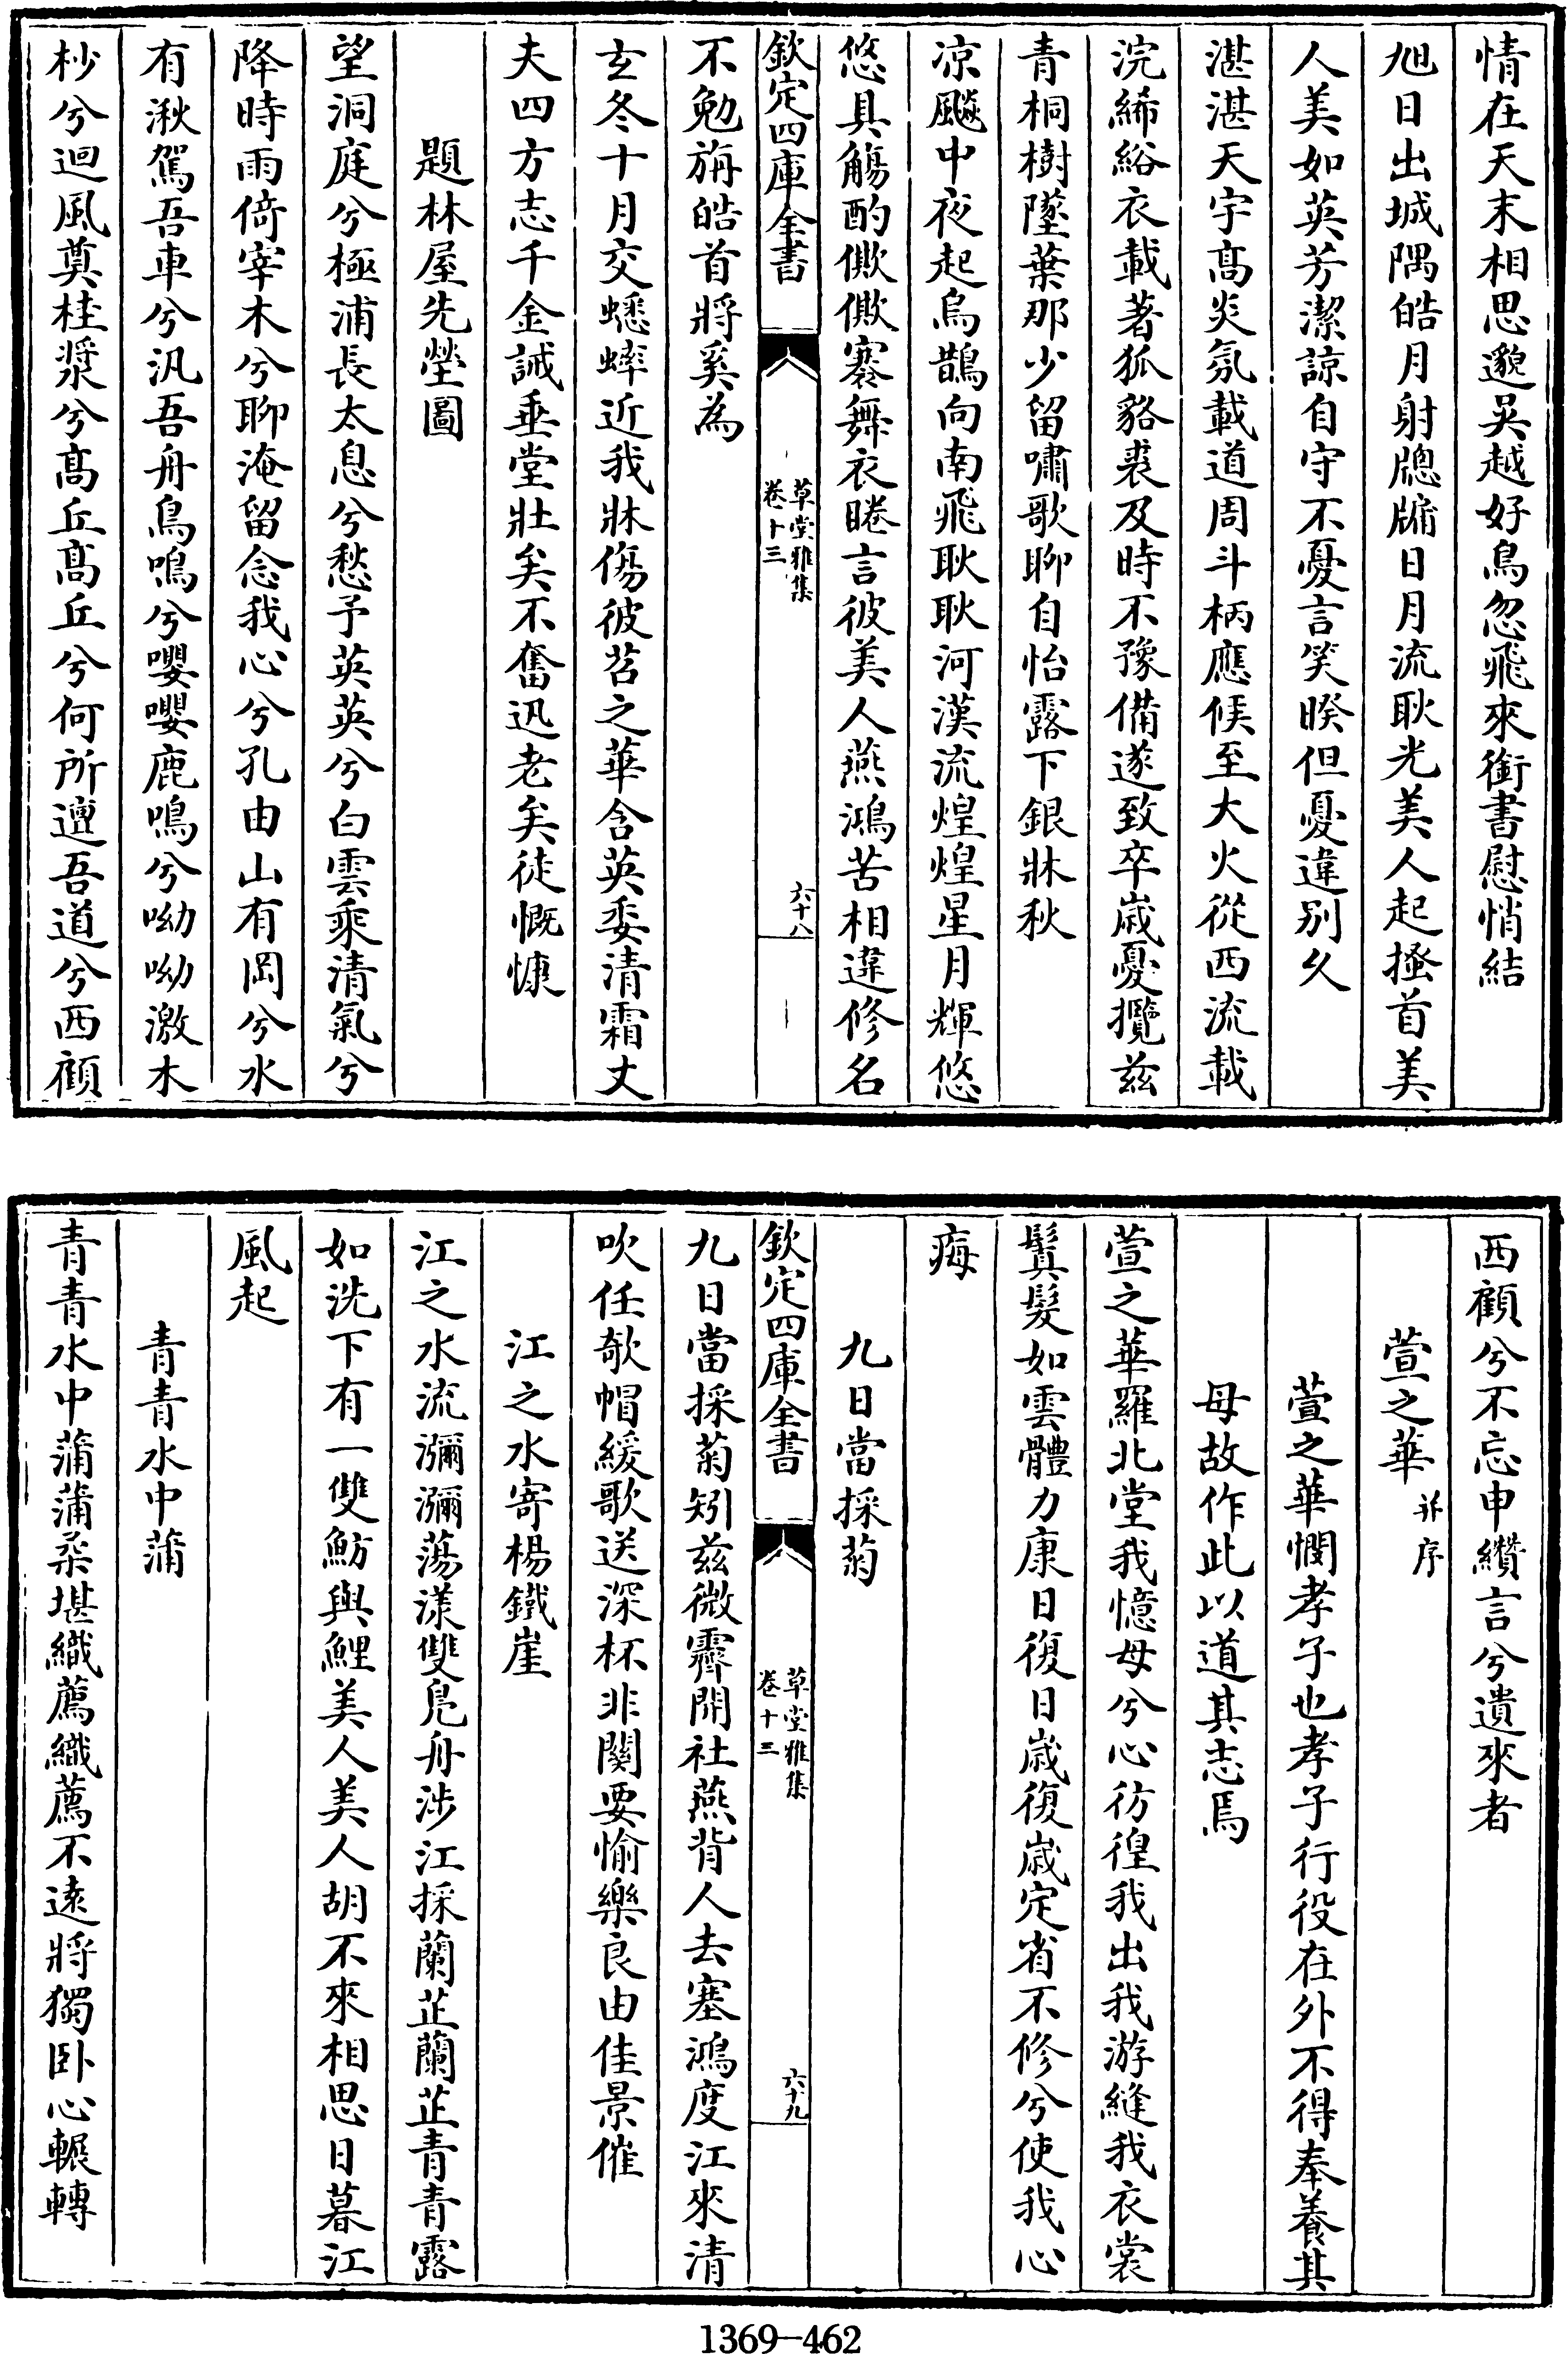 情在天末相思邈吳越好鳥忽飛來銜書慰悄結
旭日出城隅皓月射牕牖日月流耿光美人起搔首美
人美如英芳潔諒自守不憂言笑暌但憂違别久
湛湛天宇髙炎氛載道周斗柄應候至大火從西流載
浣絺綌衣載著狐貉裘及時不豫備遂致卒嵗憂攬兹
青桐樹墜葉那少留嘯歌聊自怡露下銀牀秋
凉飈中夜起烏鵲向南飛耿耿河漢流煌煌星月輝悠
悠具觴酌僛僛褰舞衣睠言彼美人燕鴻苦相違修名
欽定四庫全書
草堂雅集
卷十三
六十八
不勉旃皓首將奚為
玄冬十月交蟋蟀近我牀傷彼苕之華含英委清霜丈
夫四方志千金誡垂堂壯矣不奮迅老矣徒慨慷
題林屋先塋圖
望洞庭兮極浦長太息兮愁予英英兮白雲乘清氣兮
降時雨倚宰木兮聊淹留念我心兮孔由山有岡兮水
有湫駕吾車兮汎吾舟鳥鳴兮嚶嚶鹿鳴兮呦呦激木
杪兮迴風奠桂漿兮髙丘髙丘兮何所邅吾道兮西顧
西顧兮不忘申纘言兮遺來者
萱之華并序
萱之華憫孝子也孝子行役在外不得奉養其
母故作此以道其志焉
萱之華羅北堂我憶母兮心彷徨我出我游縫我衣裳
鬒髮如雲體力康日復日嵗復嵗定省不修兮使我心
痗
九日當採菊
欽定四庫全書
草堂雅集
卷十三
六十九
九日當採菊矧兹微霽開社燕背人去塞鴻度江來清
吹任欹帽緩歌送深杯非關要愉樂良由佳景催
江之水寄楊鐵崖
江之水流瀰瀰蕩漾雙鳧舟涉江採蘭芷蘭芷青青露
如洗下有一雙魴與鯉美人美人胡不來相思日暮江
風起
青青水中蒲
青青水中蒲蒲柔堪織薦織薦不遠將獨卧心輾轉
1369-462